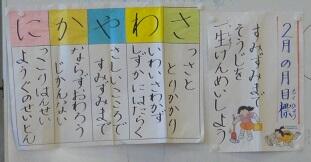 2月の月目標
すみずみまで
そうじを
一生けんめいしよう
さっさと
とりかかり
わいわいさわがず
しずかにはたらく
やさしいこころで
すみずみまで
かならずおわろう
じかんない
にっこりはんせい
ようぐのせいとん